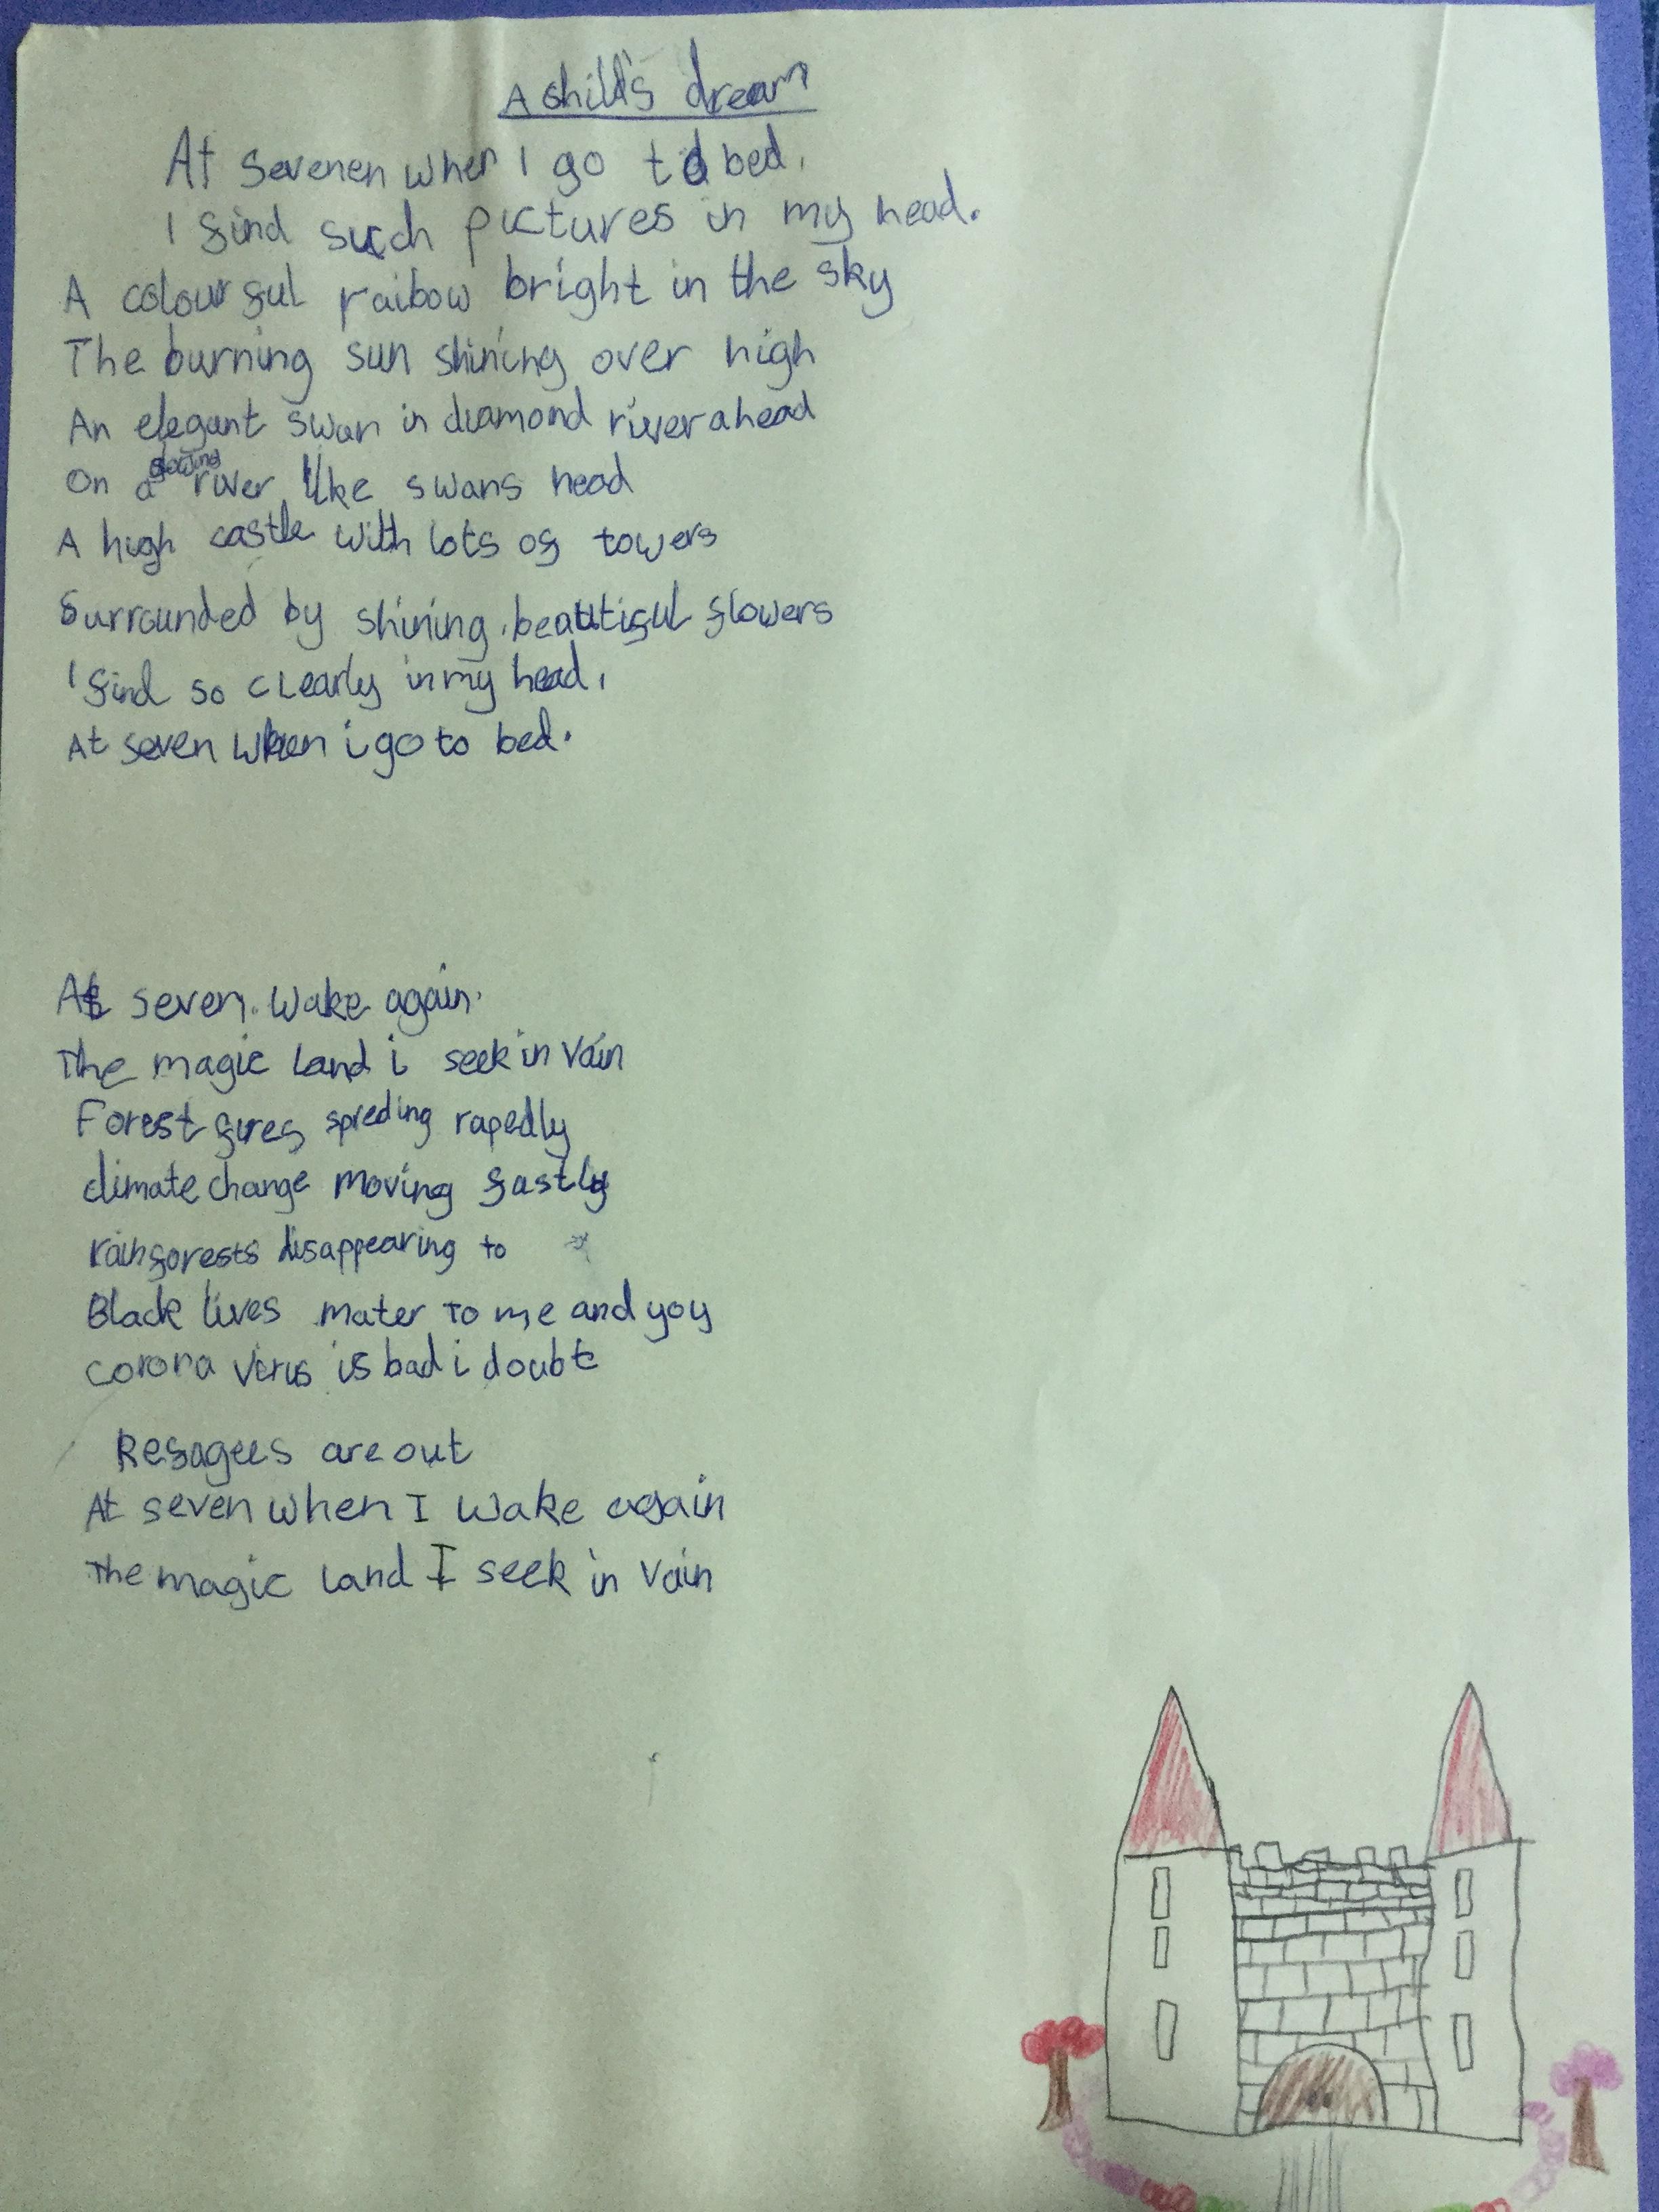 A child's dream
At sevenen when I go to bed,
I find such pictures in my head.
A colourful raibow bright in the sky
The burning sun shining over high
An elegant swan in diamond river ahead
On a glowing river like swans head
A high castle with lots of towers
Surrounded by shining, beautiful flowers
I find so clearly in my head,
At seven when i go to bed.
At seven. Wake again.
The magic land i seek in vain
Forest fires spreding rapedly
climate change moving fastly
rainforests disappearing to
Black lives mater to me and yoy
corona virus is bad i doubt
Refagees are out
At seven when I wake again
The magic land I seek in vain